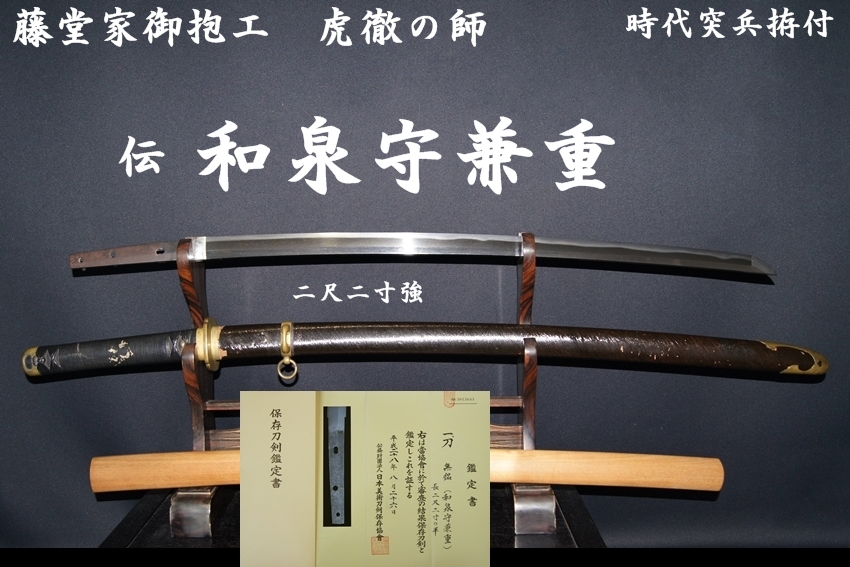 藤堂家御抱工 虎徹の師 時代突兵拵付
伝 和泉守兼重
二尺二寸強
保存刀剣鑑定書
鑑定書
一刀 無銘(和泉守兼重)
長二尺二寸0分半
右は当協會に於て審査の結果保存刀剣と
鑑定しこれを証する
平成二十八年 八月二十六日
公益財団法人 日本美術刀剣保存協會